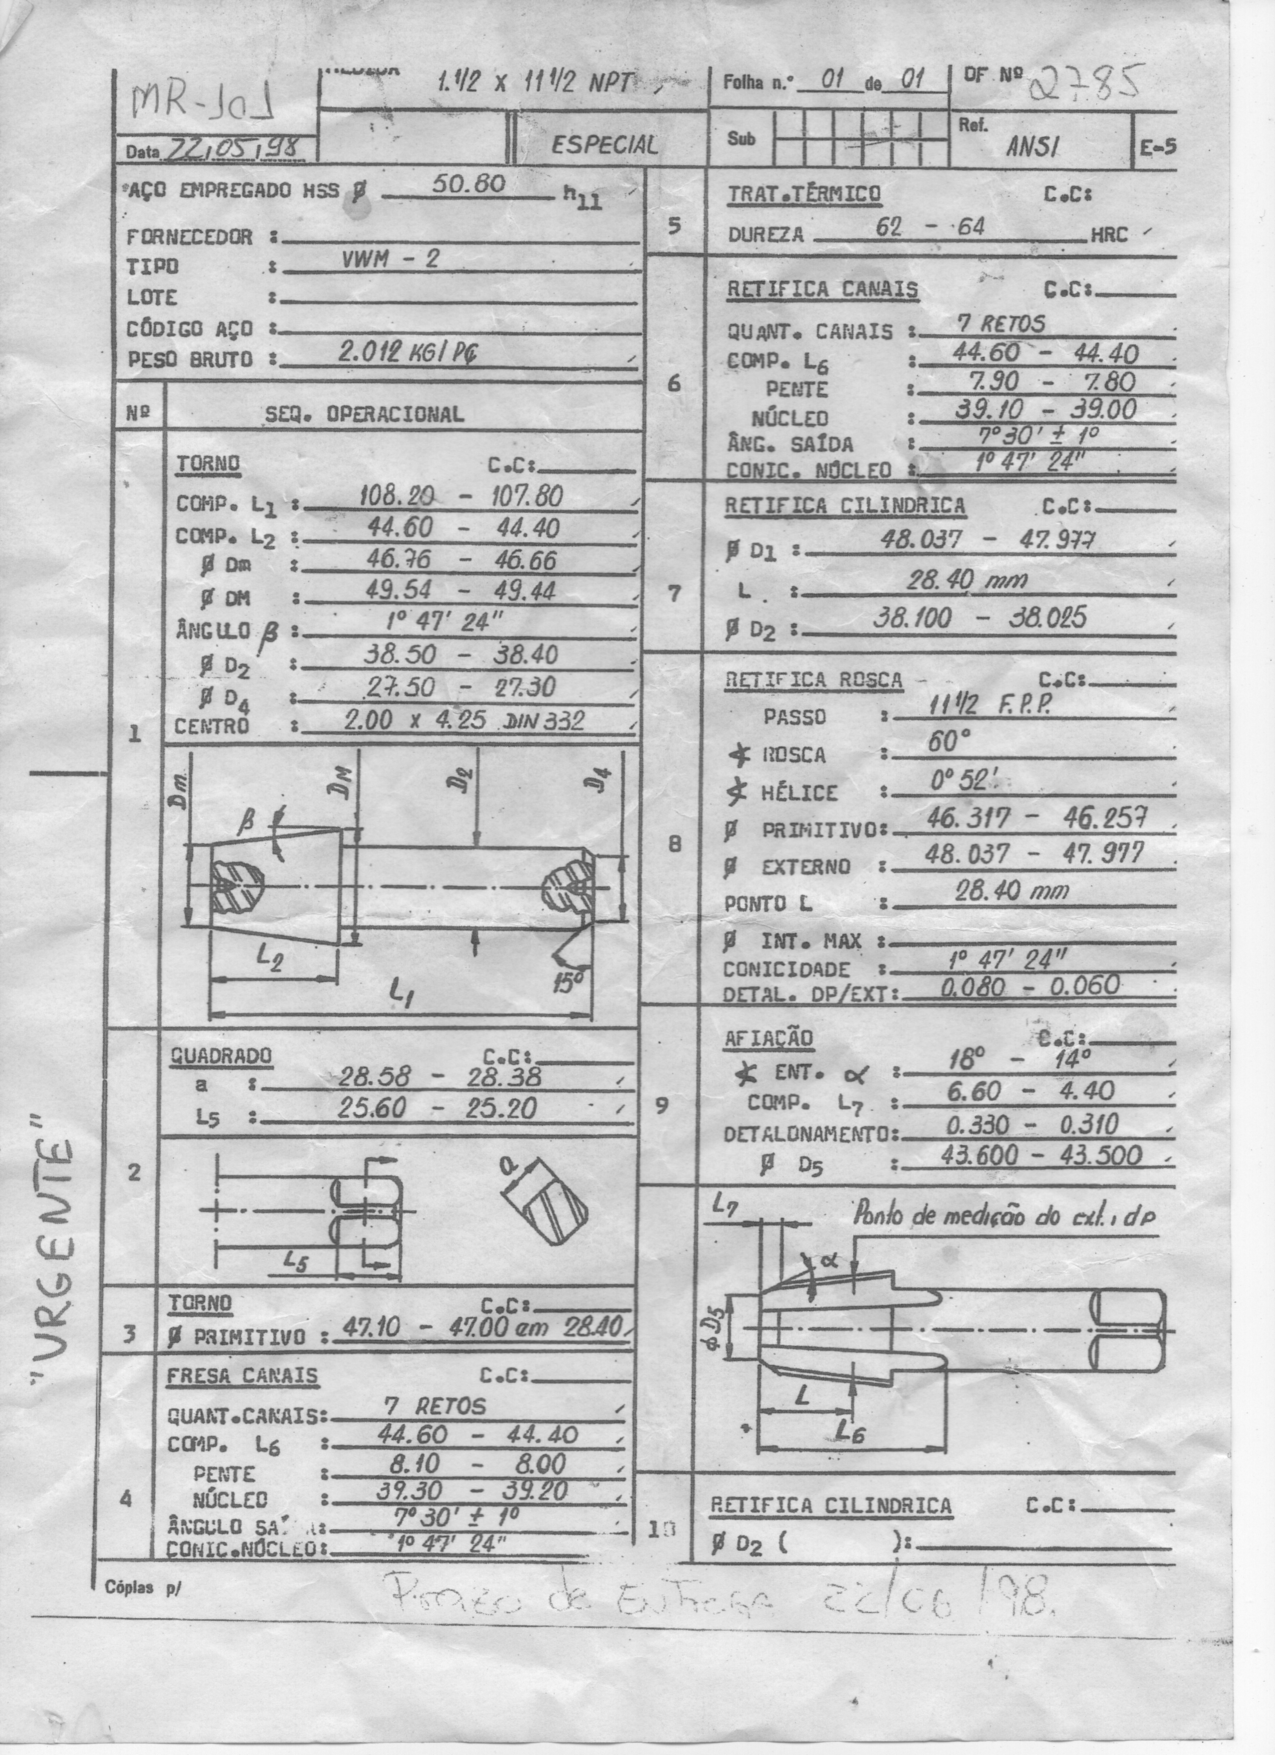 MR-101
1.1/2 X 11 1/2 NPT
Folha n.º 01 de 01
DF Nº 2785
Data 22,05,98
ESPECIAL
Sub
Ref. ANSI
E-5
AÇO EMPREGADO HSS Ø 50.80 h11
FORNECEDOR :
TIPO : VWM - 2
LOTE :
CÓDIGO AÇO :
PESO BRUTO : 2.012 KG/PÇ
Nº SEQ. OPERACIONAL
1
TORNO C.C:
COMP. L1 : 108.20 - 107.80
COMP. L2 : 44.60 - 44.40
Ø Dm : 46.76 - 46.66
Ø DM : 49.54 - 49.44
ÂNGULO β : 1º 47' 24"
Ø D2 : 38.50 - 38.40
Ø D4 : 27.50 - 27.30
CENTRO : 2.00 x 4.25 DIN 332
Dm
β
DM
D2
D4
L2
L1
15º
2
QUADRADO C.C:
a : 28.58 - 28.38
L5 : 25.60 - 25.20
a
L5
3
TORNO C.C:
Ø PRIMITIVO : 47.10 - 47.00 em 28.40
4
FRESA CANAIS C.C:
QUANT.CANAIS: 7 RETOS
COMP. L6 : 44.60 - 44.40
PENTE : 8.10 - 8.00
NÚCLEO : 39.30 - 39.20
ÂNGULO : 7º 30' ± 1º
CONIC.NÚCLEO: 1º 47' 24"
5
TRAT.TÉRMICO C.C:
DUREZA 62 - 64 HRC
6
RETIFICA CANAIS C.C:
QUANT. CANAIS : 7 RETOS
COMP. L6 : 44.60 - 44.40
PENTE : 7.90 - 7.80
NÚCLEO : 39.10 - 39.00
ÂNG. SAÍDA : 7º 30' ± 1º
CONIC. NÚCLEO : 1º 47' 24"
7
RETIFICA CILINDRICA C.C:
Ø D1 : 48.037 - 47.977
L . : 28.40 mm
Ø D2 : 38.100 - 38.025
8
RETIFICA ROSCA C.C:
PASSO : 11 1/2 F.P.P.
∢ ROSCA : 60º
∢ HÉLICE : 0º 52'
Ø PRIMITIVO: 46.317 - 46.257
Ø EXTERNO : 48.037 - 47.977
PONTO L : 28.40 mm
Ø INT. MAX :
CONICIDADE : 1º 47' 24"
DETAL. DP/EXT: 0.080 - 0.060
9
AFIAÇÃO C.C:
∢ ENT. α : 18º - 14º
COMP. L7 : 6.60 - 4.40
DETALONAMENTO: 0.330 - 0.310
Ø D5 : 43.600 - 43.500
L7
Ponto de medição do ext. , dp
α
Ø D5
L
L6
10
RETIFICA CILINDRICA C.C:
Ø D2 ( ):
"URGENTE"
Cópias p/
Prazo de Entrega 22/06/98.